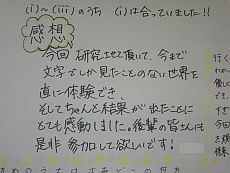 (i)～(iii)のうち (i)は合っていました!!
感想
今回 研究させて頂いて、今まで
文字でしか見たことのない世界を
直に体験でき
そしてちゃんと結果が出たことに
とても感動しました。後輩の皆さんも
是非 参加して欲しいです!